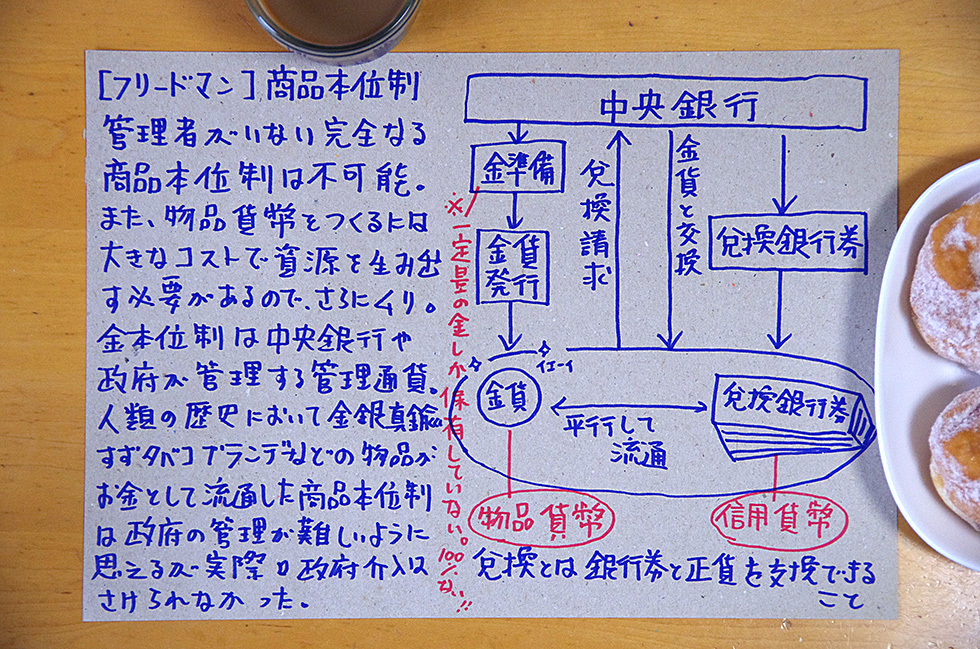 [フリードマン]商品本位制
管理者がいない完全なる
商品本位制は不可能。
また、物品貨幣をつくるには
大きなコストで資源を生み出
す必要があるので、さらにムリ。
金本位制は中央銀行や
政府が管理する管理通貨。
人類の歴史において金銀真鍮
すずタバコブランデーなどの物品が
お金として流通した商品本位制
は政府の管理が難しいように
思えるが実際は政府介入は
さけられなかった。
中央銀行
金準備
金貨
発行
兌換請求
金貨と交換
兌換銀行券
※一定量の金しか保有していない。100%ない!!
イエーイ
金貨
平行して
流通
兌換銀行券
物品貨幣
信用貨幣
兌換とは銀行券と正貨を交換できる
こと